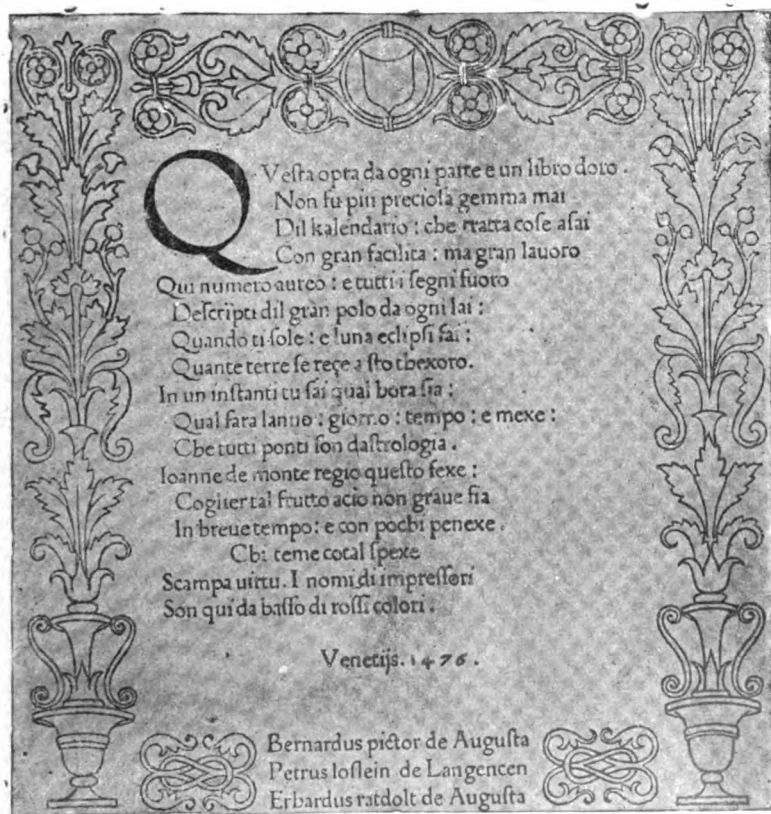 QVeſta opra da ogni parte e un libro doro.
Non fu piu precioſa gemma mai
Dil kalendario: che tratta coſe aſai
Con gran facilita: ma gran lauoro
Qui numero aureo: e tutti i ſegni fuoro
Deſcripti dil gran polo da ogni lai:
Quando ti ſole: e luna eclipſi fai:
Quante terre ſe rege a ſto thexoro.
In un inſtanti tu ſai qual hora ſia:
Qual fara lanno: giorno: tempo: e mexe:
Che tutti ponti ſon daſtrologia.
Ioanne de monte regio queſto fexe:
Coglier tal frutto acio non graue ſia
In breue tempo: e con pochi penexe.
Chi teme cotal ſpexe
Scampa uirtu. I nomi di impreſſori
Son qui da baſſo di roſſi colori.
Venetijs. 1476.
Bernardus pictor de Auguſta
Petrus loſlein de Langencen
Erhardus ratdolt de Auguſta